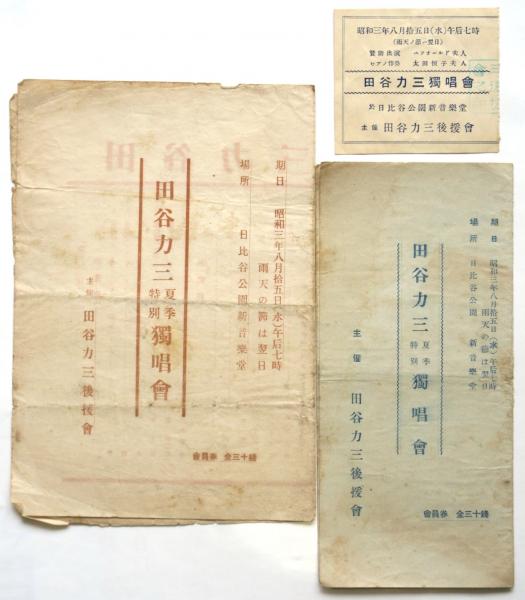 期日 昭和三年八月拾五日(水)午后七時
雨天の節は翌日
場所 日比谷公園新音樂堂
田谷力三 夏季特別 獨唱會
主催 田谷力三後援會
會員券 金三十錢
田谷力三
昭和三年八月拾五日(水)午后七時
(雨天ノ節ハ翌日)
賛助出演 夫人
ピアノ伴奏 太田恒子夫人
田谷力三獨唱會
於日比谷公園新音樂堂
主催 田谷力三後援會
期日 昭和三年八月拾五日(水)午后七時
雨天の節は翌日
場所 日比谷公園 新音樂堂
田谷力三 夏季特別 獨唱會
主催 田谷力三後援會
會員券 金三十錢